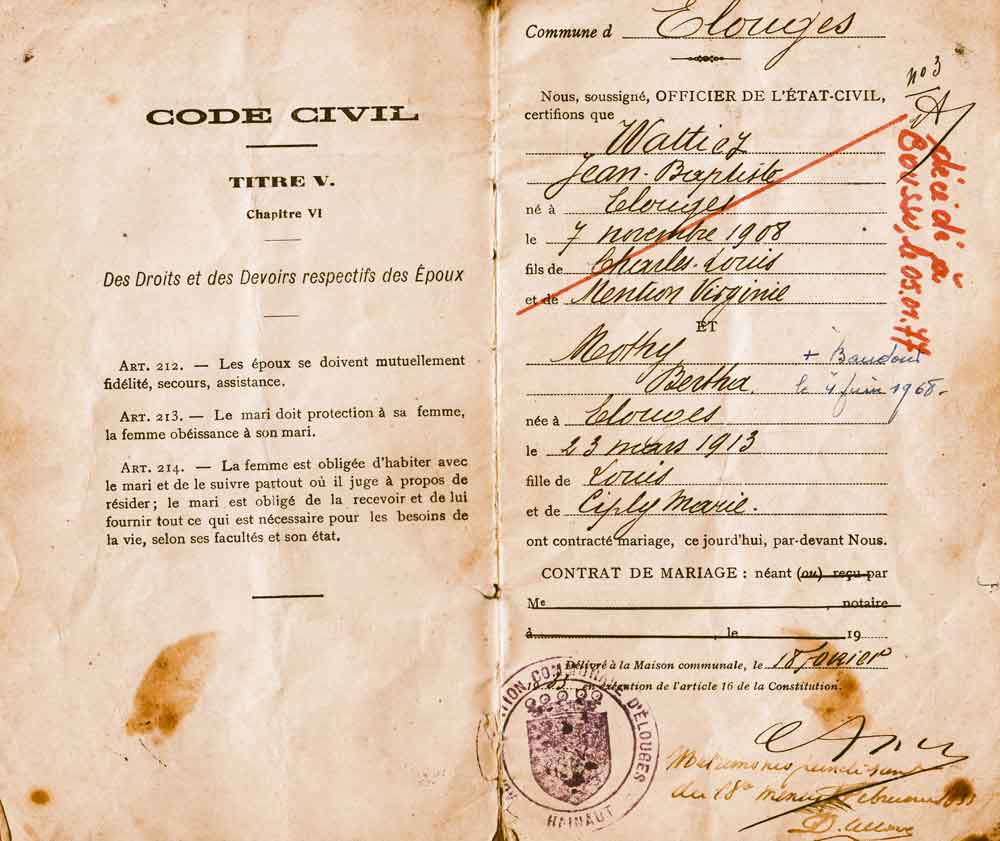 CODE CIVIL
TITRE V.
Chapitre VI
Des Droits et des Devoirs respectifs des Époux
ART. 212. — Les époux se doivent mutuellement
fidélité, secours, assistance.
ART. 213. — Le mari doit protection à sa femme,
la femme obéissance à son mari.
ART. 214. — La femme est obligée d'habiter avec
le mari et de le suivre partout où il juge à propos de
résider; le mari est obligé de la recevoir et de lui
fournir tout ce qui est nécessaire pour les besoins de
la vie, selon ses facultés et son état.
Commune d Elouges
no 3
Nous, soussigné, OFFICIER DE L'ÉTAT-CIVIL,
certifions que
Wattiez
Jean-Baptiste
né à Elouges
le 7 novembre 1908
fils de Charles-Louis
et de Mention Virginie
décédé à
Boussu, le 05.01.77
ET
Mothy
Bertha.
+ Baudour
le 4 juin 1968.
née à Elouges
le 23 mars 1913
fille de Louis
et de Ciply Marie.
ont contracté mariage, ce jourd'hui, par-devant Nous.
CONTRAT DE MARIAGE : néant (ou) reçu par
Me , notaire
à , le 19
Délivré à la Maison communale, le 18 février
1933 en exécution de l'article 16 de la Constitution.
COMMUNALE D'ÉLOUGES
HAINAUT
du 18